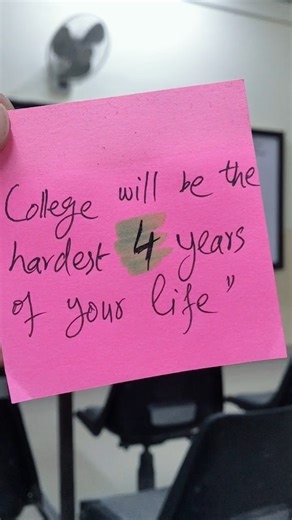 College will be the
hardest 4 years
of your life"